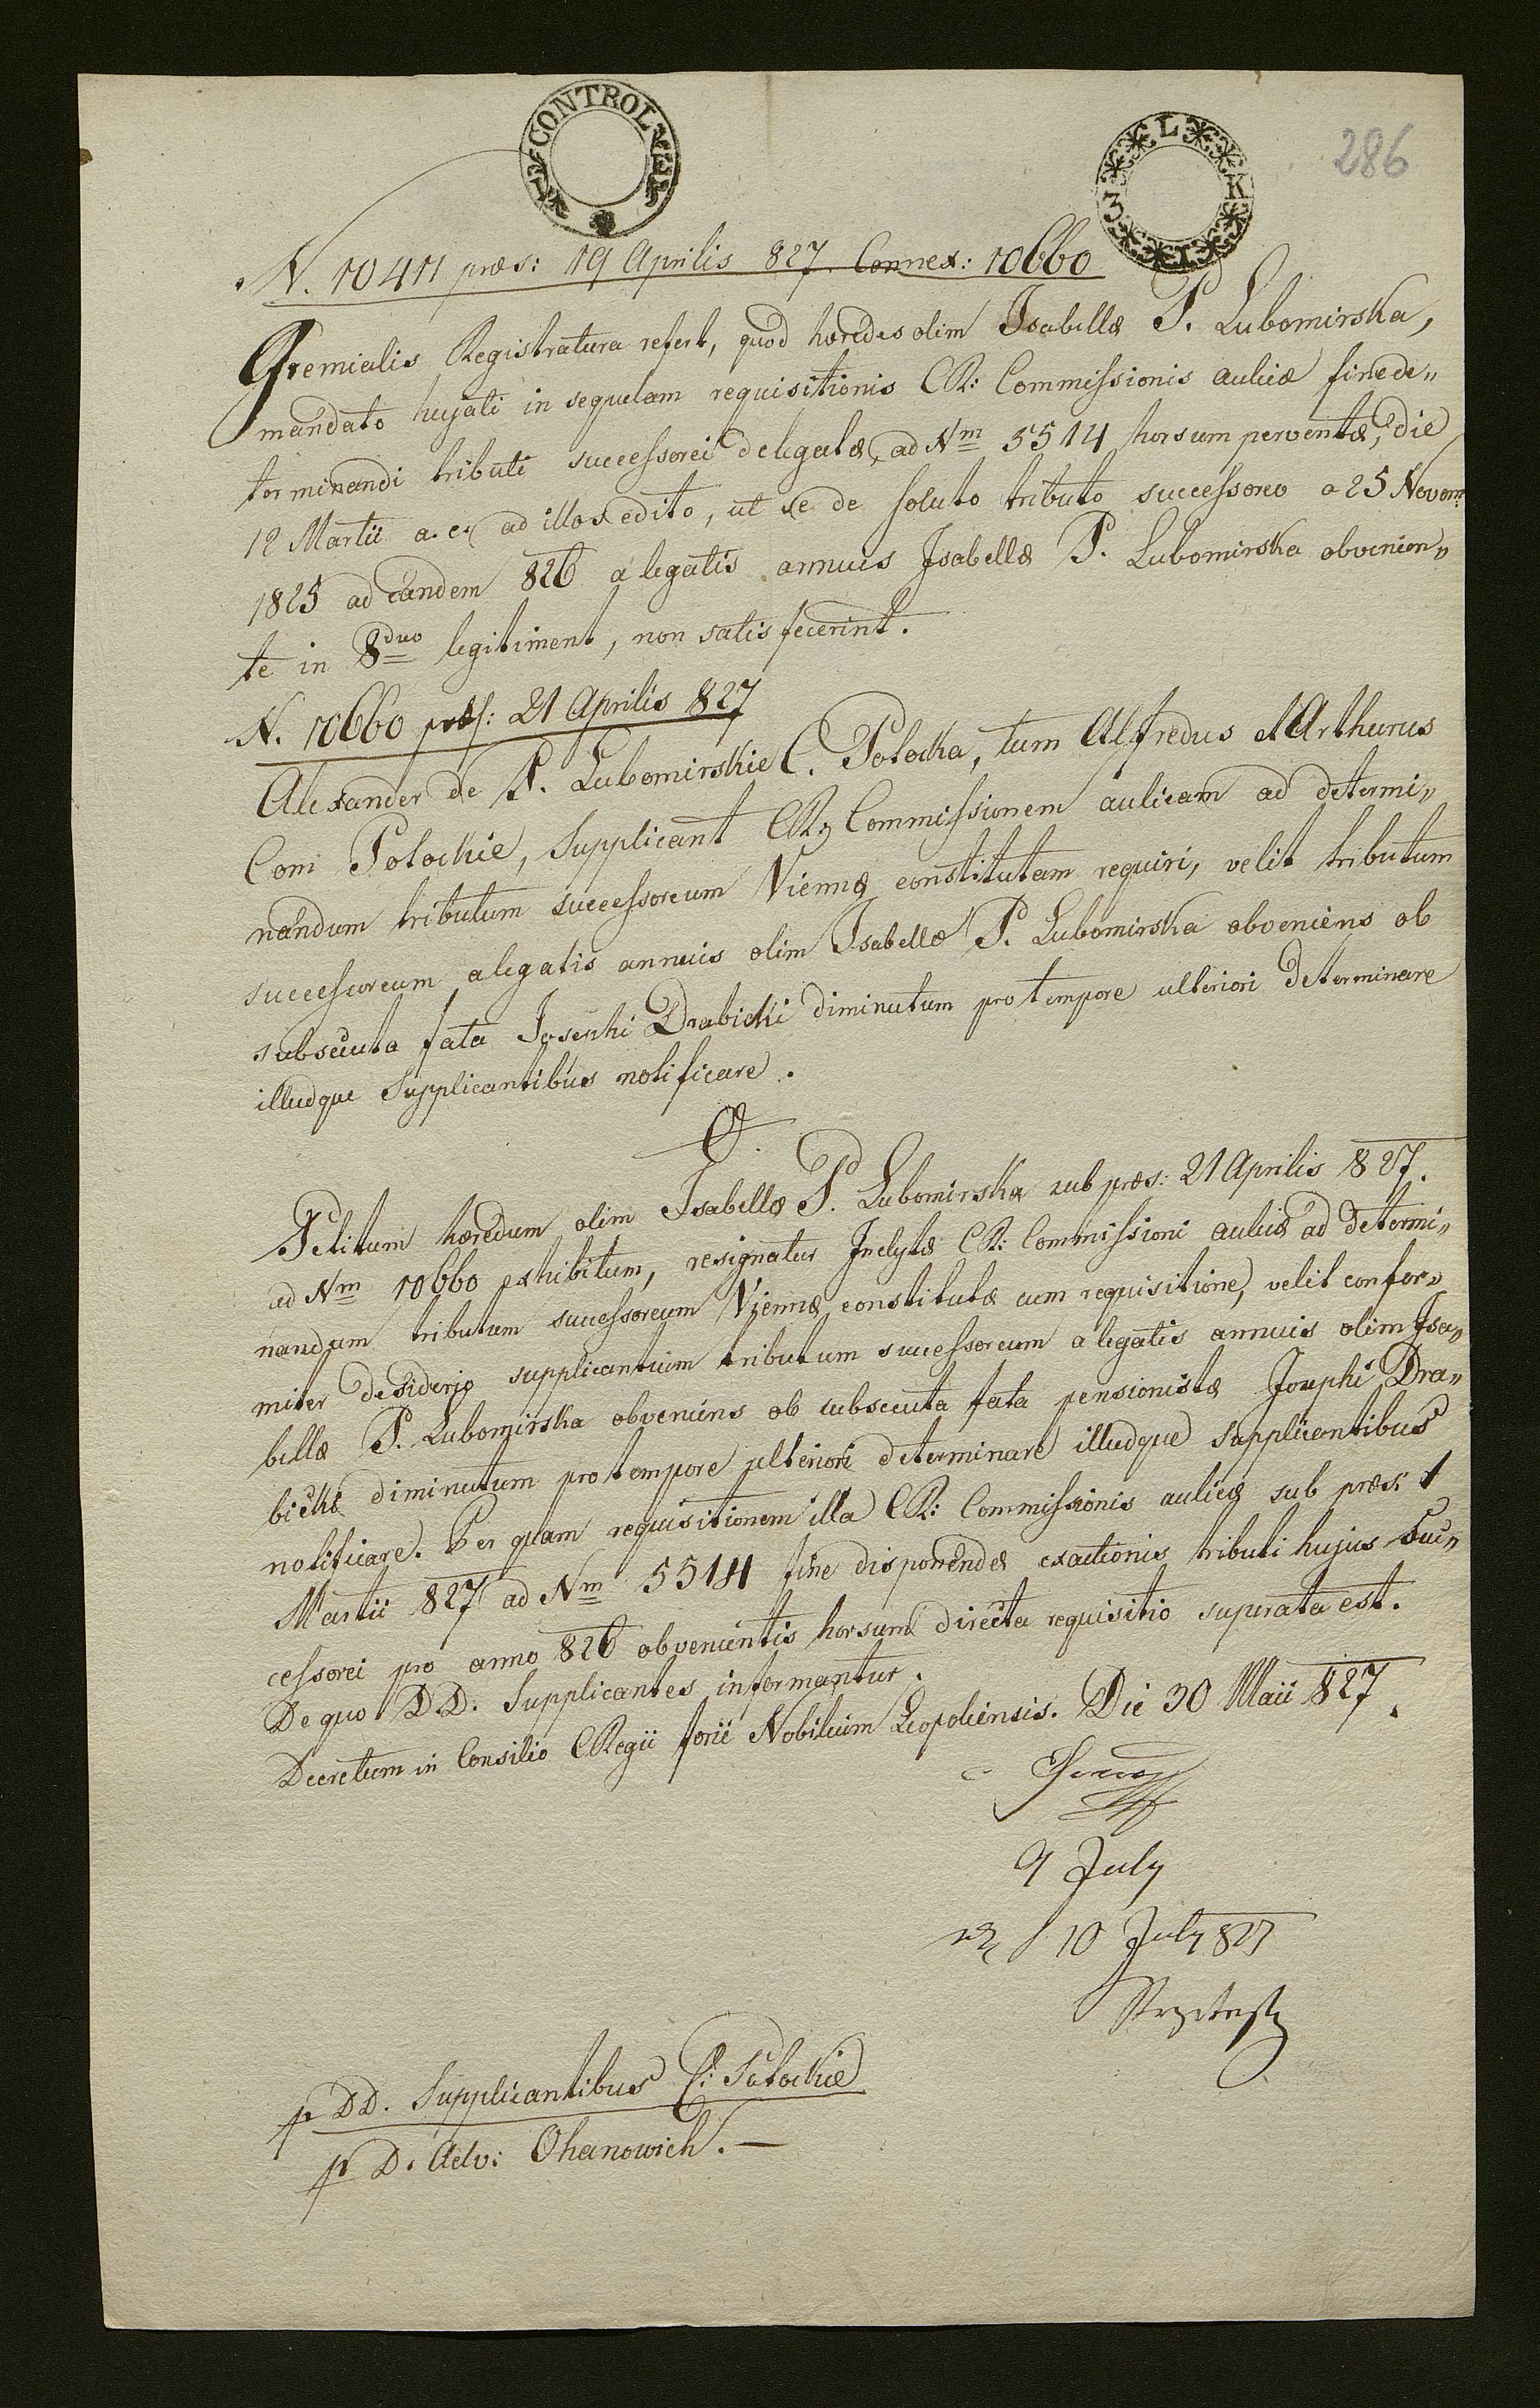 CONTROL
3 L K 1
286
N. 10411 præs: 19 Aprilis 827. Connex: 10660
Gremialis Registratura refert, quod hæredes olim Isabellæ P. Lubomirska,
mandato hujati in sequelam requisitionis CR: Commissionis aulicæ fine de„
terminandi tributi successorei delegatæ, ad Nm 5514 horsum perventæ, die
12 Martii a. c. ad illos edito, ut se de soluto tributo successoreo a 25 Novem:
1825 ad eandem 826 a legatis annuis Isabellæ P. Lubomirska obvenien„
te in 8duo legitiment, non satisfecerint.
N. 10660 præs: 21 Aprilis 827
Alexander de P. Lubomirskie C. Potocka, tum Alfredus et Arthurus
Com Potockie, supplicant CR: Commissionem aulicam ad determi„
nandum tributum successoreum Viennæ constitutam requiri, velit tributum
successoreum a legatis annuis olim Isabellæ P. Lubomirska obveniens ob
subsecuta fata Josephi Drabicki diminutum pro tempore ulteriori determinare
illudque supplicantibus notificare.
Petitum hæredum olim Isabellæ P. Lubomirska sub præs: 21 Aprilis 827.
ad Nm 10660 exhibitum, resignatur Inclytæ CR: Commissioni aulicæ ad determi„
nandum tributum successoreum Viennæ constitutæ cum requisitione, velit confor„
miter desiderio supplicantium tributum successoreum a legatis annuis olim Isa„
bellæ P. Lubomirska obveniens ob subsecuta fata pensionistæ Josephi Dra„
bicki diminutum pro tempore ulteriori determinare illudque supplicantibus
notificare. Per quam requisitionem illa CR: Commissionis aulicæ sub præs: 1
Martii 827 ad Nm 5514 fine disponendæ exactionis tributi hujus suc„
cessorei pro anno 826 obvenientis horsum directa requisitio superata est.
De quo D.D. Supplicantes informantur.
Decretum in Consilio CRegii fori Nobilium Leopoliensis. Die 30 Maii 827.
9 July
10 July 827
p DD. Supplicantibus C: Potockie
p D. Adv: Ohanowich. —